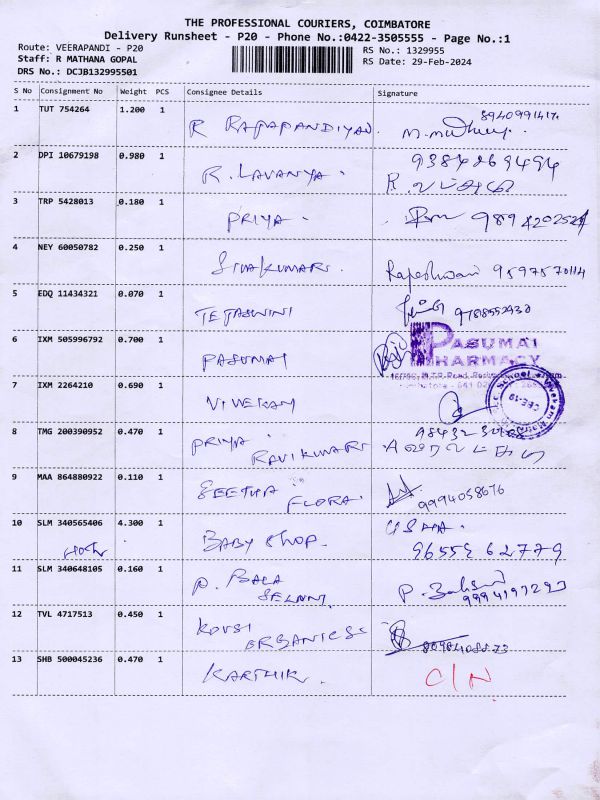 THE PROFESSIONAL COURIERS, COIMBATORE
Delivery Runsheet - P20 - Phone No.:0422-3505555 - Page No.:1
Route: VEERAPANDI - P20
Staff: R MATHANA GOPAL
DRS No.: DCJB132995501
RS No.: 1329955
RS Date: 29-Feb-2024
S No Consignment No Weight PCS Consignee Details Signature
1 TUT 754264 1.200 1 R RAJAPANDIYAN
2 DPI 10679198 0.980 1 R. LAVANYA. 9384869494
3 TRP 5428013 0.180 1 PRIYA. 9894202524
4 NEY 60050782 0.250 1 SIVAKUMAR. Rajeshwari 9597570114
5 EDQ 11434321 0.070 1 TEJASWINI
6 IXM 505996792 0.700 1 PASUMAI
PASUMAI
PHARMACY
7 IXM 2264210 0.690 1 VIVEKAM
8 TMG 200390952 0.470 1 PRIYA
RAVIKUMAR
9 MAA 864880922 0.110 1 GEETHA
FLORA. 9994058676
10 SLM 340565406 4.300 1 BABY SHOP. USHA.
96559 62779
11 SLM 340648105 0.160 1 P. BALA
SELVAN. 9994197293
12 TVL 4717513 0.450 1 KOVSI
ORGANICS
13 SHB 500045236 0.470 1 KARTHIK. C/N